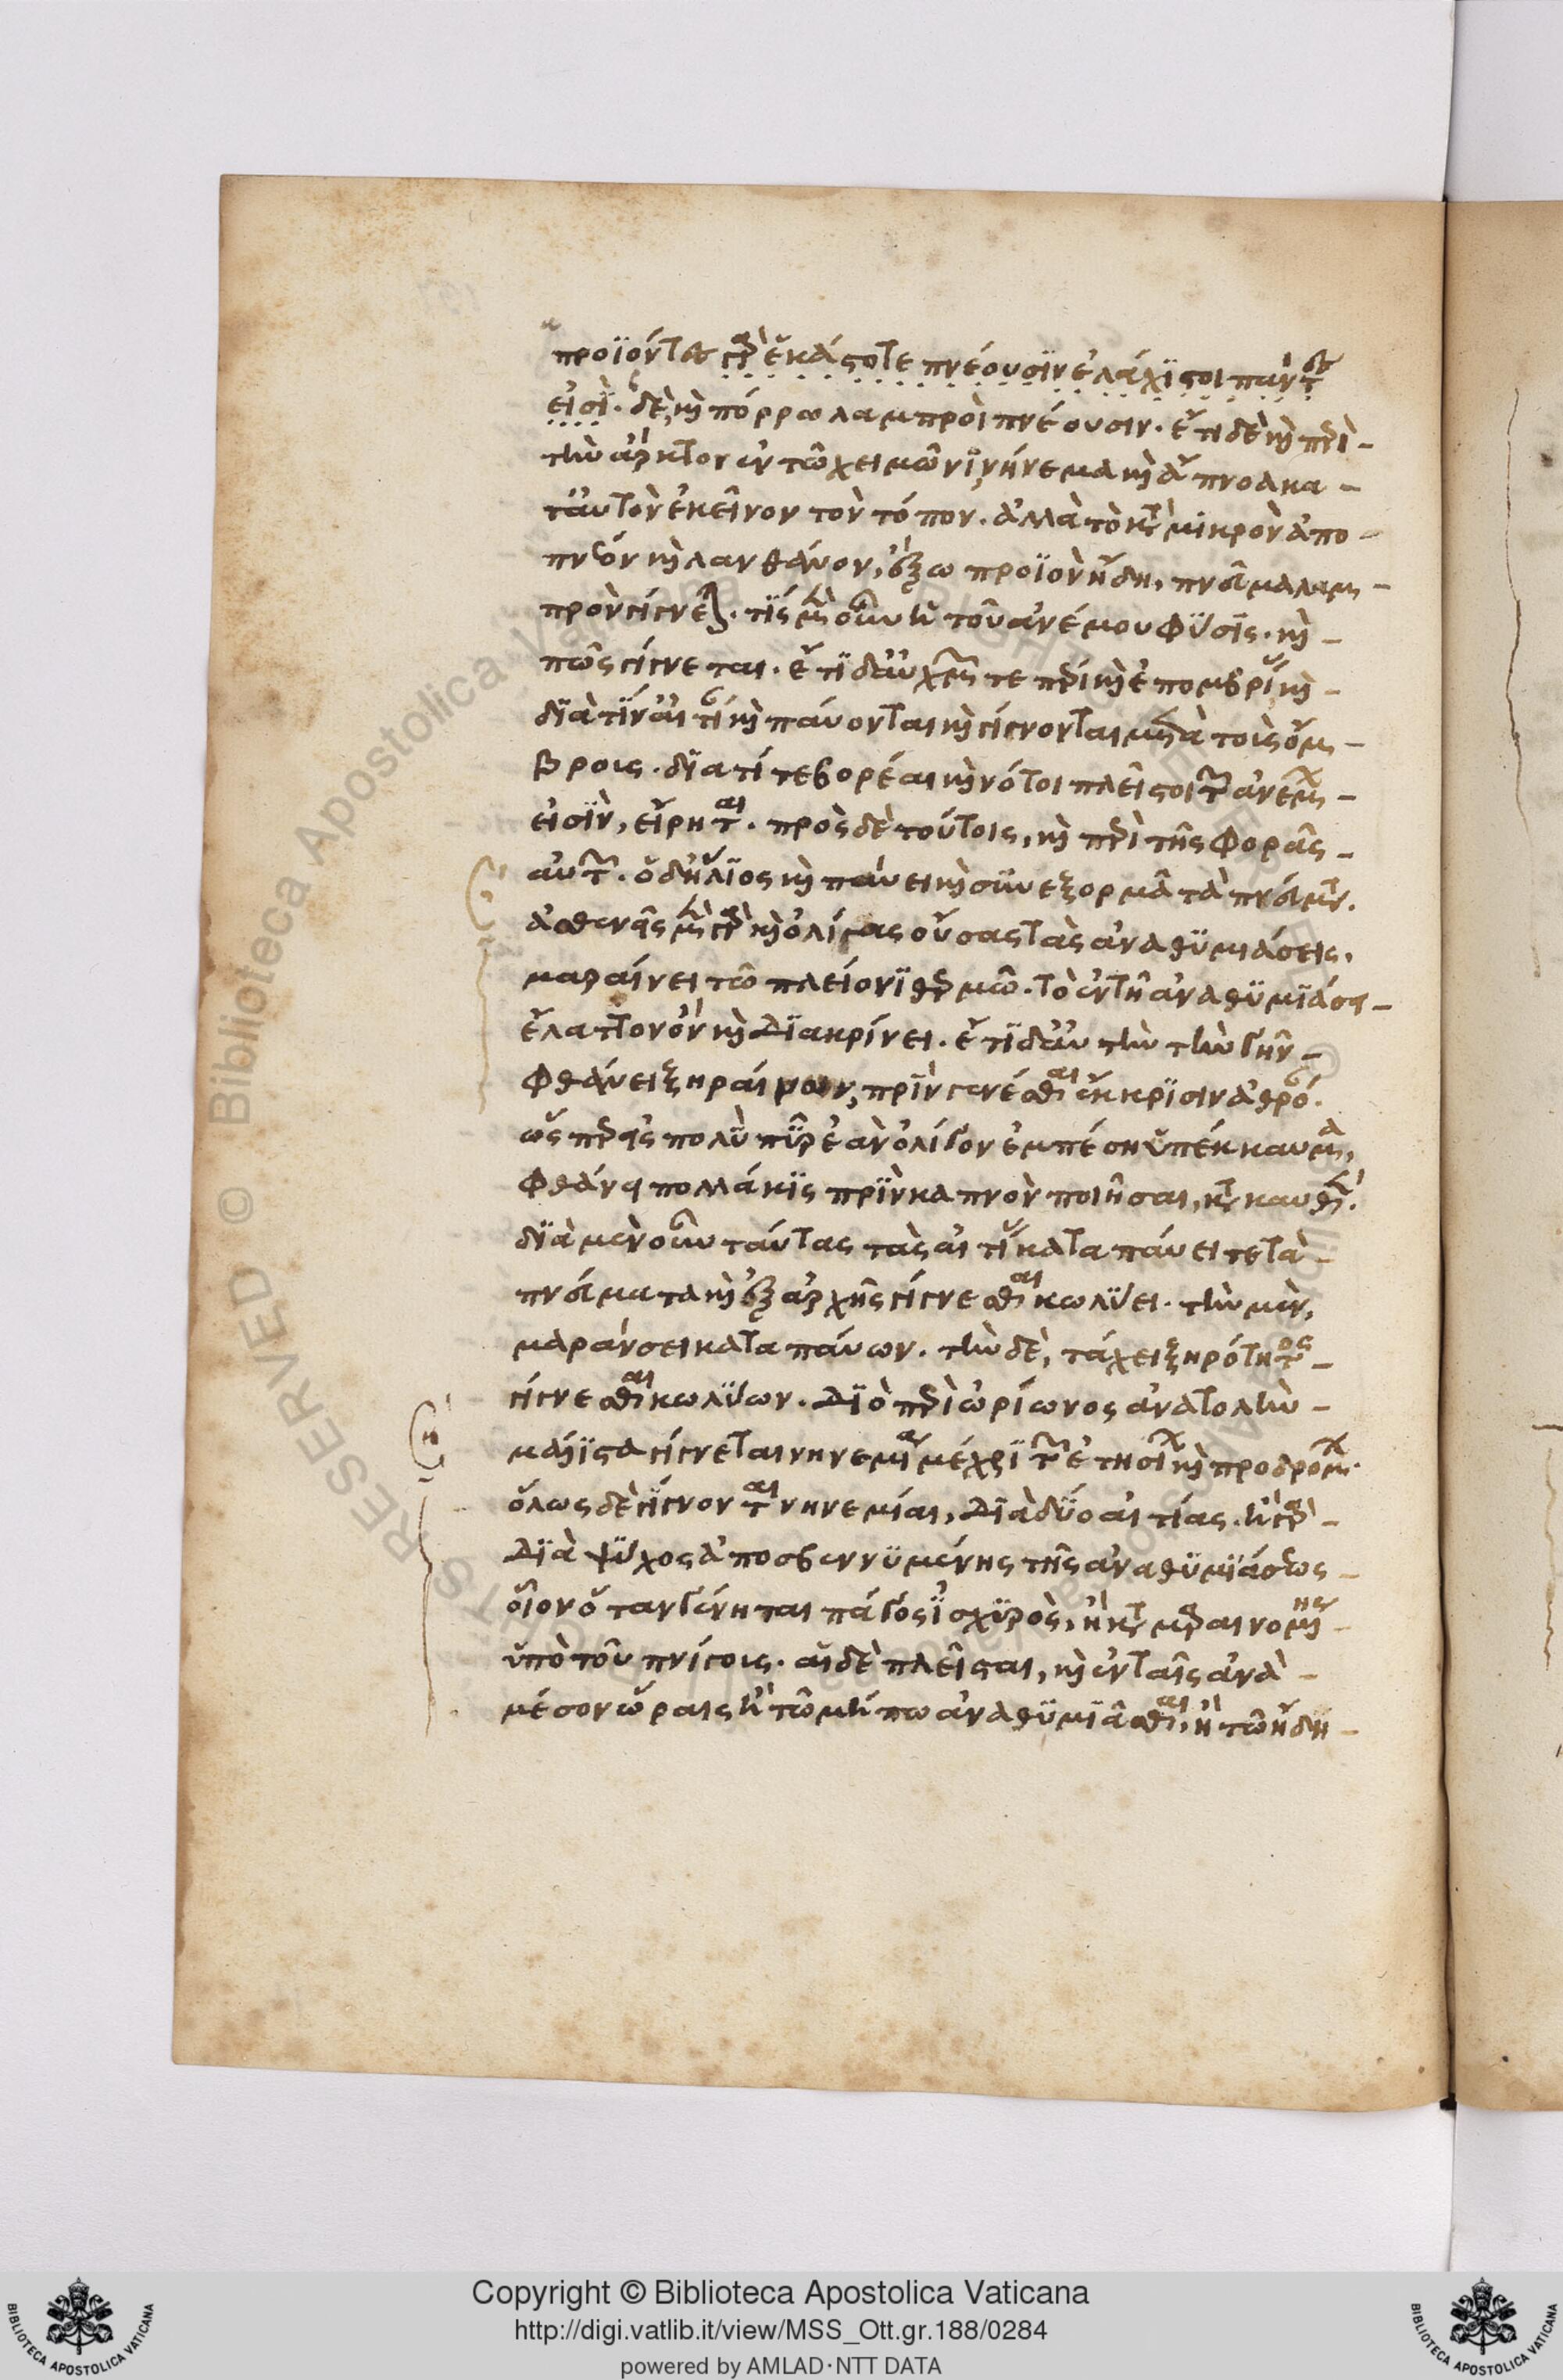 προϊόντες γὰρ ἑκάστοτε πνέουσιν ἐλάχιστοι πάντες
εἰσὶ. δὲ, καὶ πόρρω λαμπροὶ πνέουσιν. ἔτι δὲ καὶ περὶ
τὴν ἄρκτον ἐν τῶ χειμῶνι, νήνεμα καὶ ἄπνοα κα
τ' αὐτὸν ἐκεῖνον τὸν τόπον. ἀλλὰ τὸ κατὰ μικρὸν ἀπο
πνέον καὶ λανθάνον, ἔξω προϊὸν ἤδη, πνεῦμα λαμ
πρὸν γίγνεται. τίς μὲν οὖν ἡ τοῦ ἀνέμου φύσις. καὶ
πῶς γίγνεται. ἔτι δ' αὐχμῶν τε πέρι καὶ ἐπομβρίας καὶ
διὰ τίν' αἰτίαν καὶ παύονται καὶ γίγνονται μετὰ τοὺς ὄμ
βρους. διὰ τί τε βορέαι καὶ νότοι πλεῖστοι τῶν ἀνέμων
εἰσὶν, εἴρηται. πρὸς δὲ τούτοις, καὶ περὶ τῆς φορᾶς
αὐτῶν. ὁ δ' ἥλιος καὶ παύει καὶ συνεξορμᾶ τὰ πνεύματα.
ἀσθενεῖς μὲν γὰρ καὶ ὀλίγας οὔσας τὰς ἀναθυμιάσεις.
μαραίνει τῶ πλείονι θερμῶ. τὸ ἐν τῆ ἀναθυμιάσει
ἔλαττον ὂν καὶ διακρίνει. ἔτι δ' αὐτὴν τὴν γῆν
φθάνει ξηραίνων, πρὶν γενέσθαι ἔκκρισιν ἀθρόον.
ὥσπερ εἰς πολὺ πῦρ ἐὰν ὀλίγον ἐμπέση ὑπέκκαυμα,
φθάνει πολλάκις πρὶν καπνὸν ποιῆσαι, κατακαυθέν.
διὰ μὲν οὖν ταύτας τὰς αἰτίας καταπαύει τε τὰ
πνεύματα καὶ ἐξ ἀρχῆς γίγνεσθαι κωλύει. τὴν μὲν,
μαράνσει καταπαύων. τὴν δὲ, τάχει ξηρότητος
γίγνεσθαι κωλύων. διὸ περὶ ὠρίωνος ἀνατολὴν
μάλιστα γίγνεται νηνεμία μέχρι τῶν ἐτησίων καὶ προδρόμων.
ὅλως δὲ γίγνονται νηνεμίαι, διὰ δύο αἰτίας. ἢ γὰρ
διὰ ψύχος ἀποσβεννυμένης τῆς ἀναθυμιάσεως
οἷον ὅταν γένηται πάγος ἰσχυρὸς, ἢ καταμαραινομένης
ὑπὸ τοῦ πνίγους. αἱ δὲ πλεῖσται, καὶ ἐν ταῖς ἀνὰ
μέσον ὥραις ἢ τῶ μήπω ἀναθυμιᾶσθαι, ἢ τῶ ἤδη
Copyright © Biblioteca Apostolica Vaticana
http://digi.vatlib.it/view/MSS_Ott.gr.188/0284
powered by AMLAD·NTT DATA